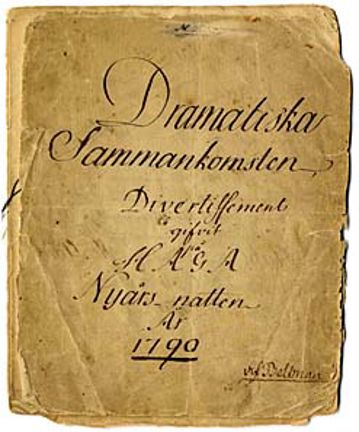 Dramatiska
Sammankomsten
Divertissement
gifvit
på
HAGA
Nyårs natten
År
1790
af Bellman